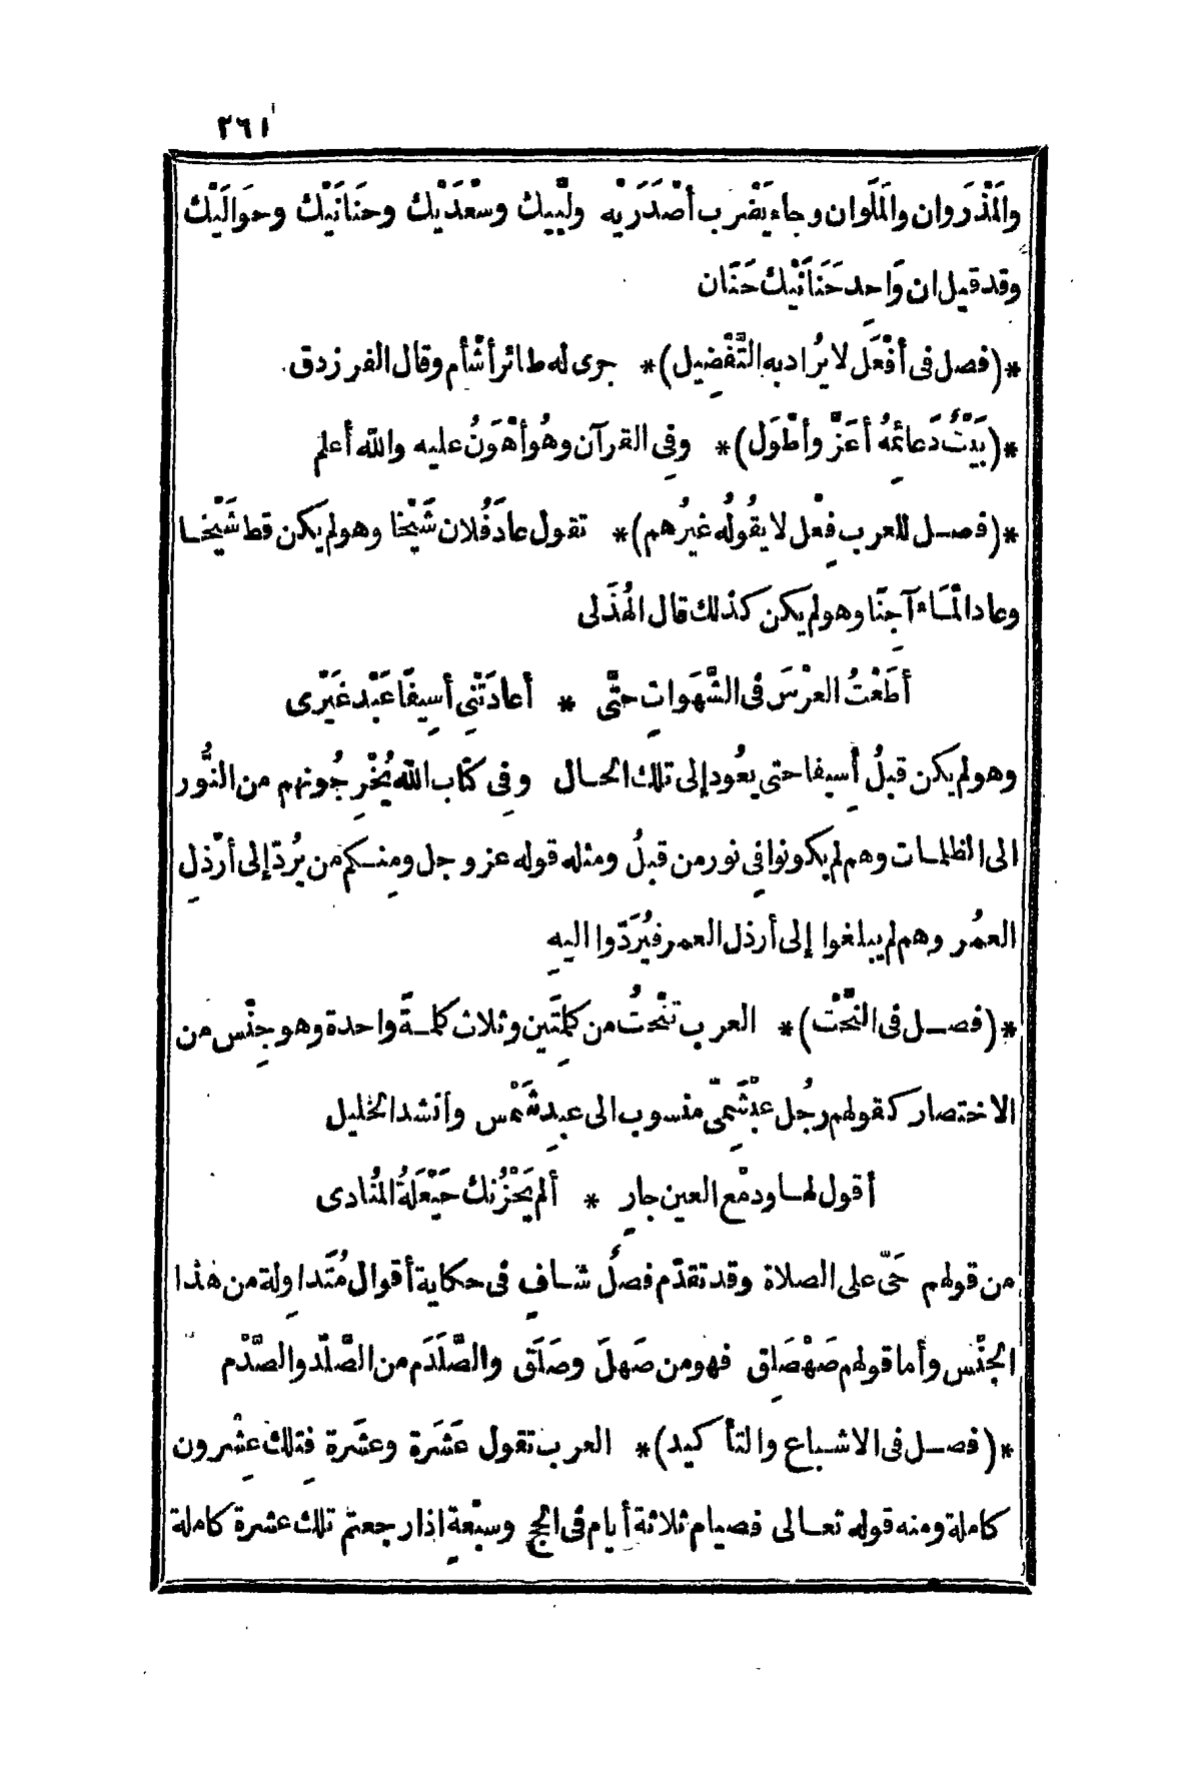 ٢٦١
والمَذْرَوان والمَلَوان وجاء يَضْرب أصْدَرَيْه ولَبَّيك وسَعْدَيْك وحَنَانَيْك وحَوالَيْك
وقد قيل ان وَاحِد حَنَانَيْك حَنَان
*(فصل فى أفْعَل لا يُراد به التَّفْضِيل)* جرى له طائر أشْأم وقال الفرزدق
*(بَيْتٌ دَعائِمُهُ أعَزّ وأطْوَل)* وفِى القرآن وهُو أهْوَنُ عليه والله أعلم
*(فصـل للعرب فِعْل لا يقُولُه غيرُهم)* تقول عادَ فُلان شَيْخا وهو لم يكن قط شَيْخـا
وعاد المْـَاء آجِنًا وهو لم يكن كذلك قال الهُذَلى
أطَعْتُ العرْسَ فى الشَّهَواتِ حتَّى * أعادَتْنِى أسِيفًا عَبْد غَيْرى
وهو لم يكن قبلُ أسِيفا حتى يعُود إلى تلك الحـال وفِى كتاب الله يُخْرِجُونهم من النُّور
الى الظلمـات وهم لم يكونوا فِى نور من قبلُ ومثله قوله عز وجل ومِنـكم من يُردّ إلى أرْذلِ
العمُر وهم لم يبلغوا إلى أرذل العمر فيُرَدّوا اليهِ
*(فصـل فى النَّحْت)* العرب تنْحتُ من كلِمتَين وثلاث كلـمةً واحدة وهو جِنْس من
الاختصار كقولهم رجُل عبْشَمِىّ منسوب الى عبدِ شَمْس وأنشد الخليل
أقول لهـا ودمْع العين جارٍ * ألم يَحْزُنك حَيْعَلَةُ المُنادى
من قولهم حَىّ على الصلاة وقد تقدّم فصلٌ شـافٍ فى حكاية أقوال مُتَداوِلة من هذا
الجنْس وأما قولهم صَهْصَلِق فهو من صَهلَ وصَلَق والصَّلْدَم من الصَّلْد والصَّدْم
*(فصـل فى الاشـباع والتأكيد)* العرب تقول عَشَرة وعشَرة فتِلك عِشْرون
كاملة ومنه قوله تعـالى فصيام ثلاثة أيام فى الحج وسبْعةٍ اذا رجعتم تلك عشرة كاملة